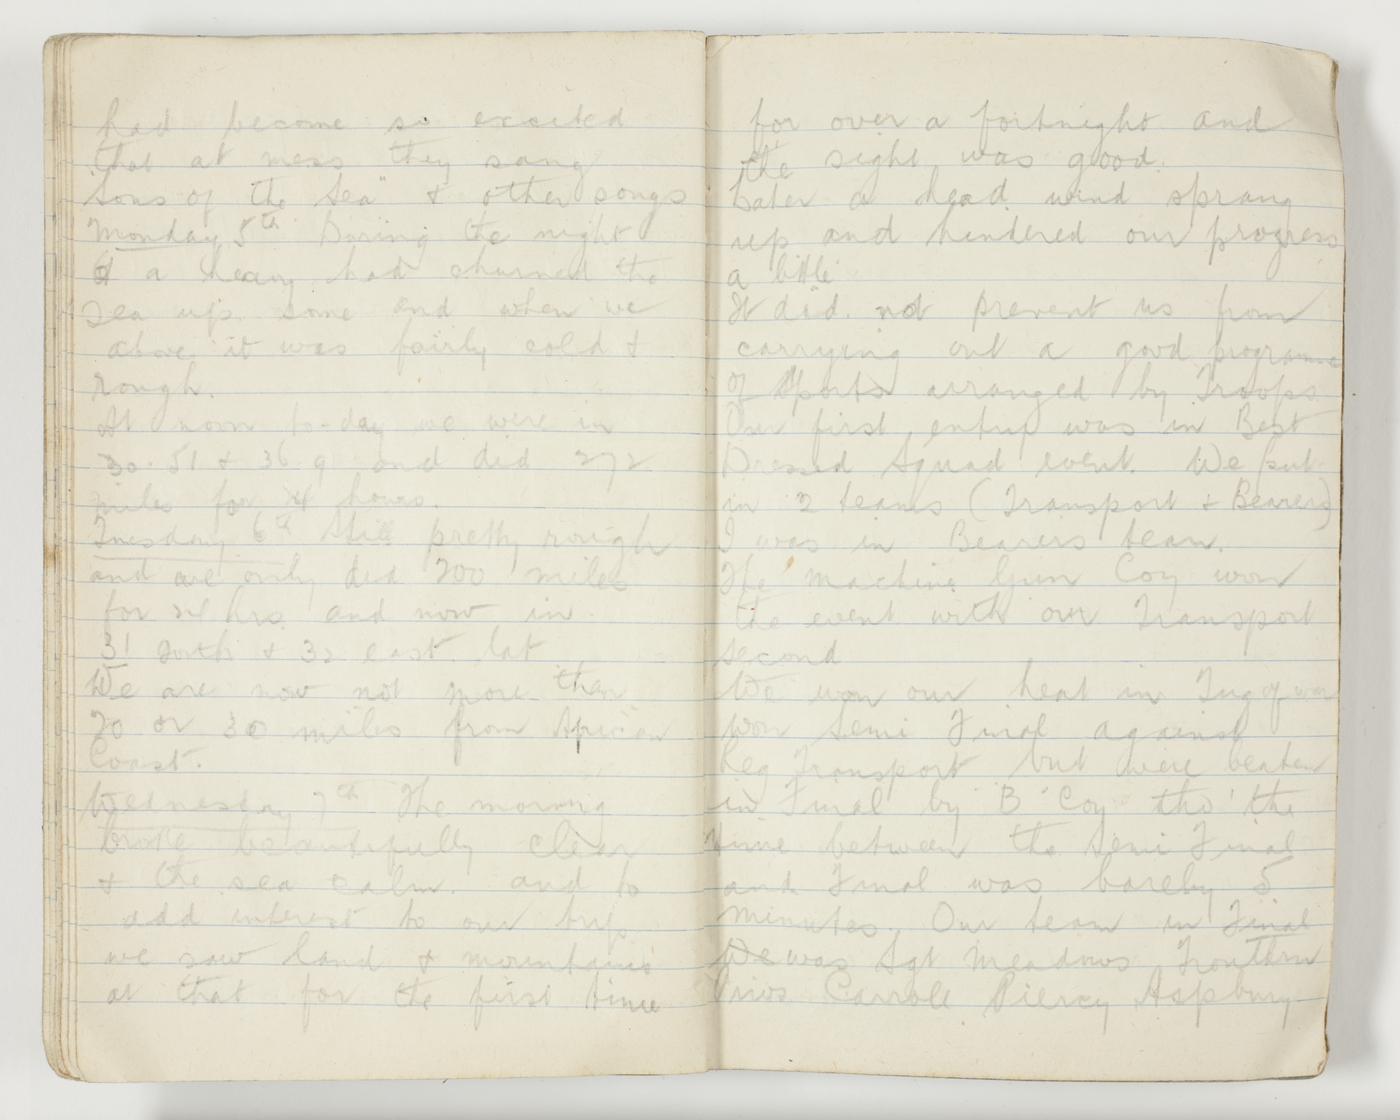 had become so excited
that at mess they sang
Sons of the Sea" & other songs
Monday 5th During the night
a heavy had churned the
sea up some and when we
above it was fairly cold &
rough.
At noon to-day we were in
30.51 & 36.9 and did 272
miles for 24 hours.
Tuesday 6th Still pretty rough
and we only did 200 miles
for 24 hrs and now in
31 north & 32 east lat
We are now not more than
20 or 30 miles from African
Coast.
Wednesday 7th The morning
broke beautifully clear
& the sea calm. and to
add interest to our trip
we saw land & mountains
at that for the first time
for over a fortnight and
the sight was good.
Later a head wind sprang
up and hindered our progress
a little
It did not prevent us from
carrying out a good programme
of Sports arranged by Troops
Our first entry was in Best
Dressed Squad event. We put
in 2 teams (Transport & Bearers)
I was in Bearers team.
The Machine Gun Coy won
the event with our Transport
second
We won our heat in Tug of war
won Semi Final against
Reg Transport but were beaten
in Final by B Coy tho' the
time between the Semi Final
and Final was barely 5
minutes. Our team in Final
was Sgt Meadows
Carroll Piercy Aspbury